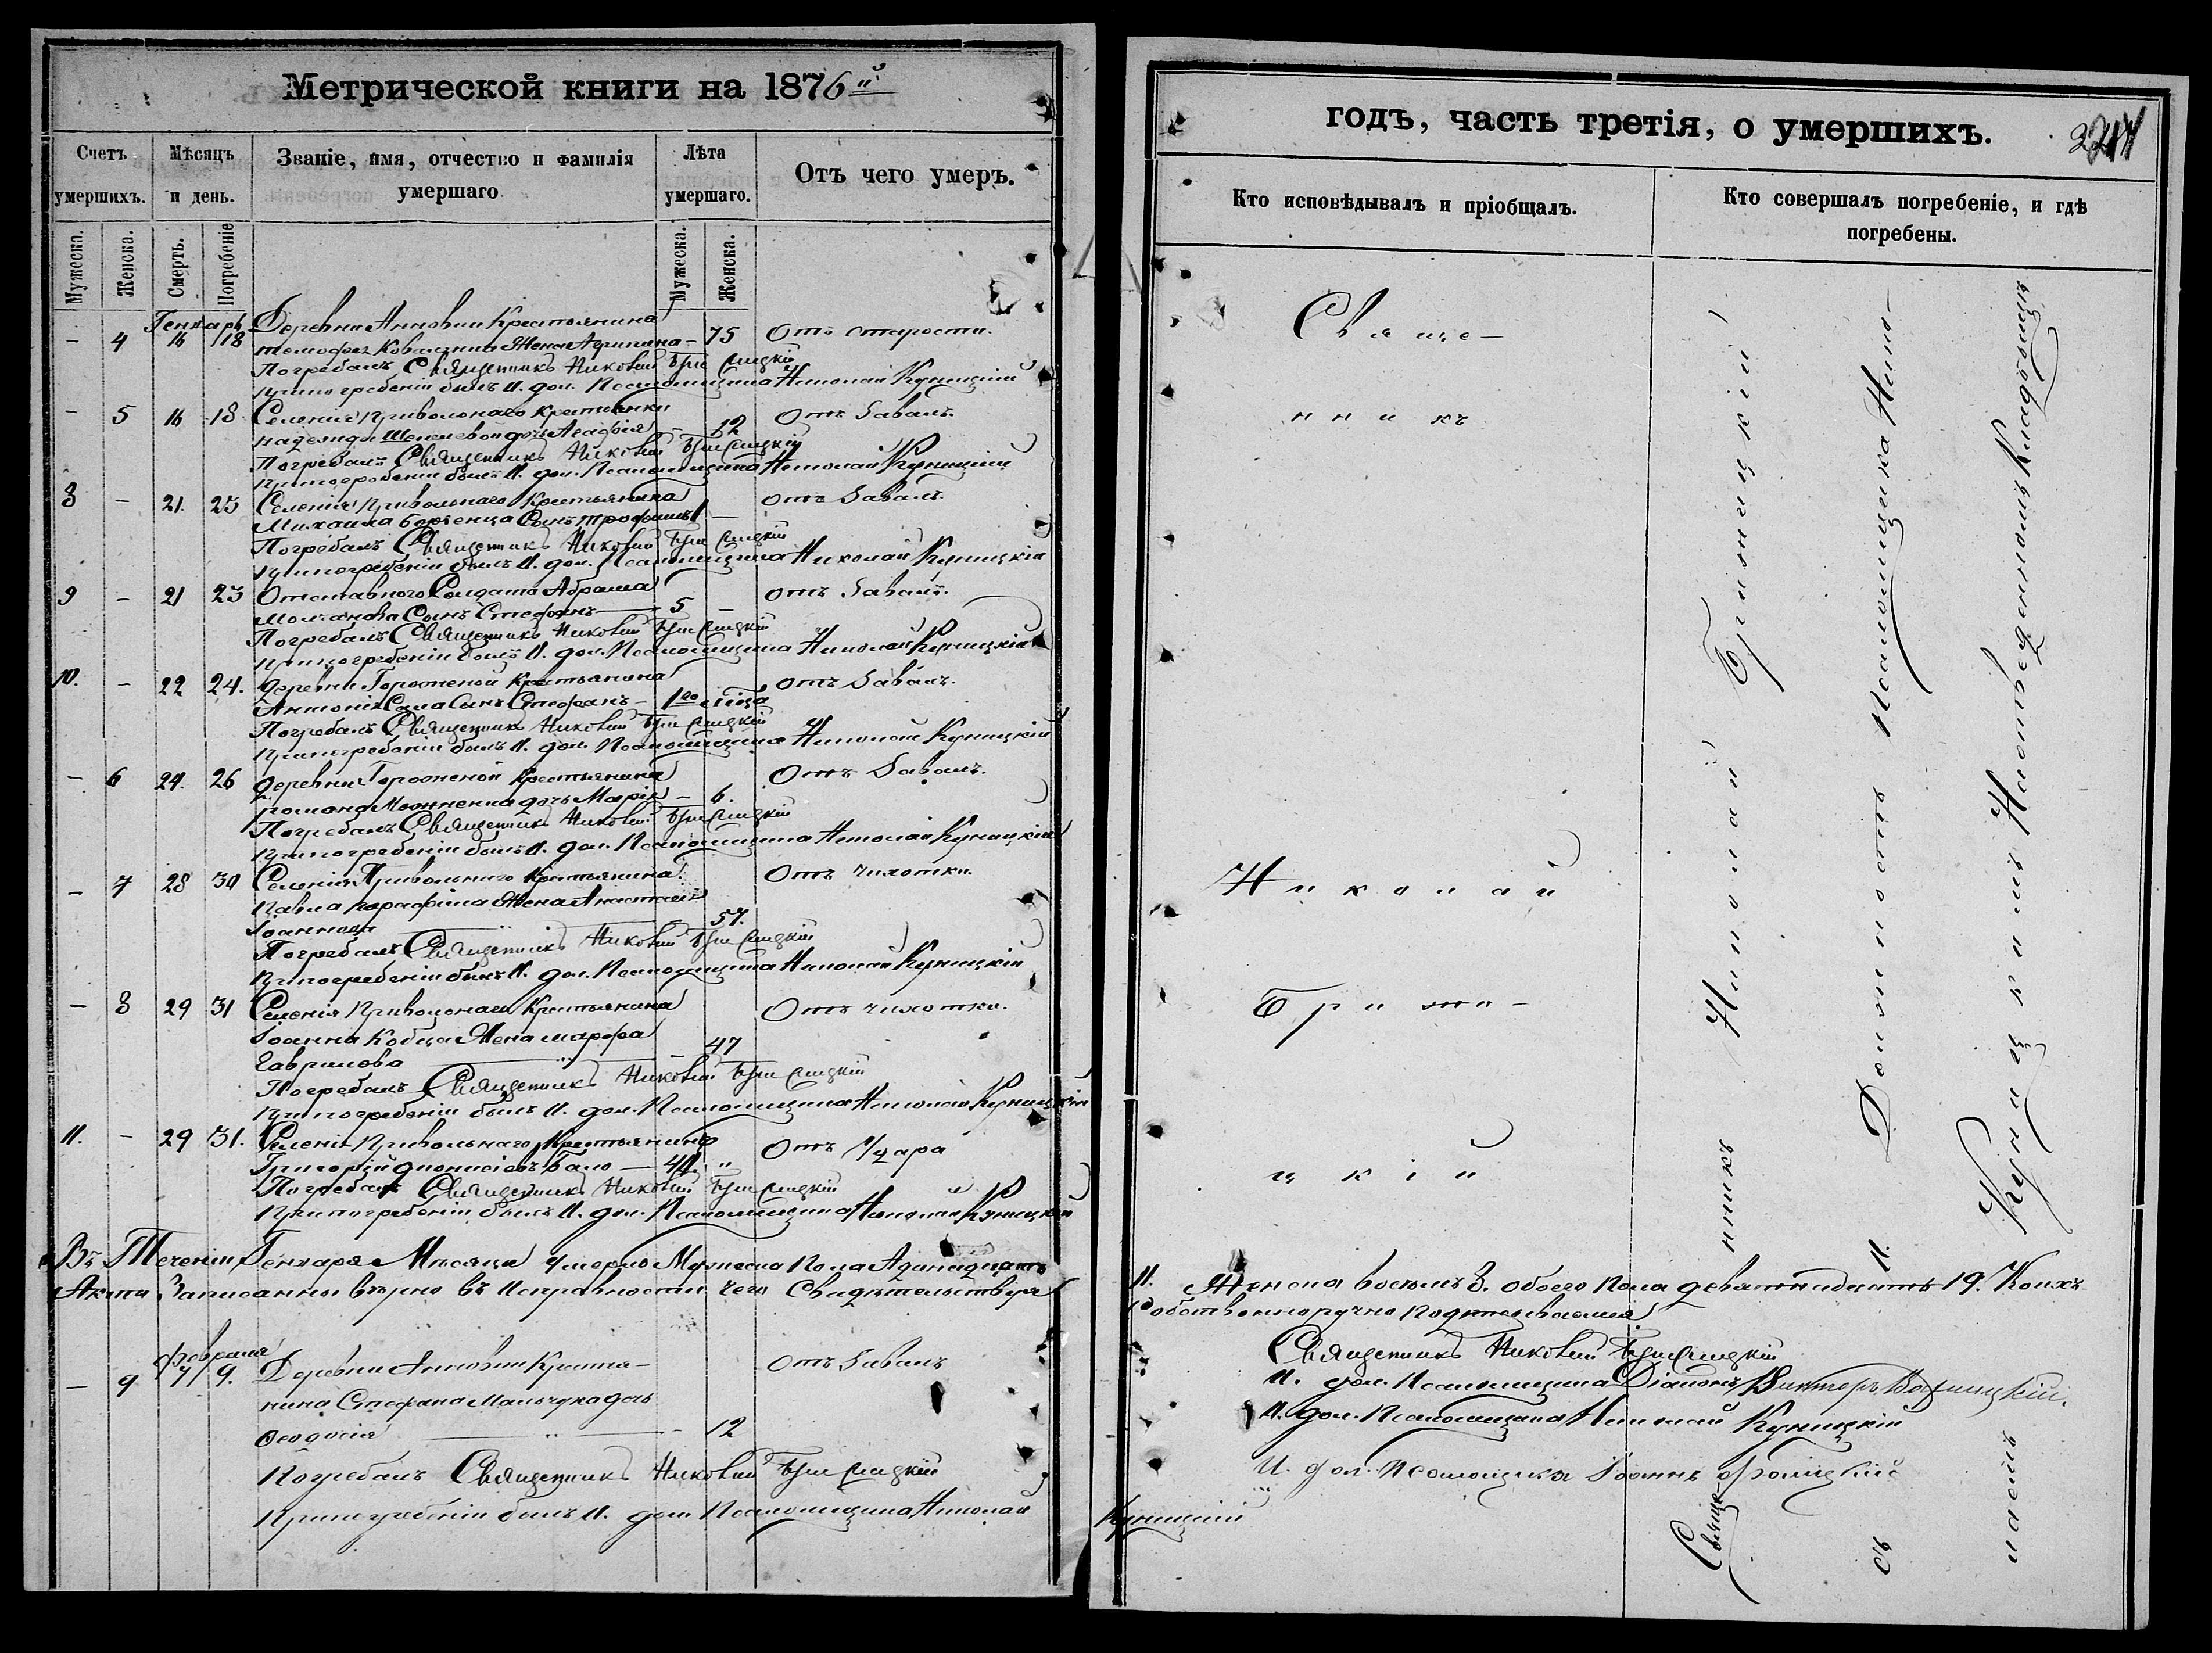 Метрической книги на 1876й
Счетъ умершихъ.
Мѣсяцъ и день.
Званіе, имя, отчество и фамилія умершаго.
Лѣта умершаго.
Отъ чего умеръ.
Мужеска.
Женска.
Смерть.
Погребеніе
Мужеска.
Женска.
Генварь
– 4 16 18 Деревни Анновки Крестьянина 75 Отъ старости.
Жена Агрипина –
Погребалъ Священникъ Николай Бржицкій
При погребеніи былъ И. дол. Псаломщика Николай Куницкій
– 5 16 18 Селенія Привольнаго крестьянки Отъ Завалъ.
Надежды дочь Агафія – 12
Погребалъ Священникъ Николай Бржицкій
При погребеніи былъ И. дол. Псаломщика Николай Куницкій
8 – 21. 23 Селенія Привольнаго Крестьянина отъ Завалъ.
Михаила Сынъ Трофимъ 1 –
Погребалъ Священникъ Николай Бржицкій
При погребеніи былъ И. дол. Псаломщика Николай Куницкій
9 – 21 23 Отставного Солдата Абрама отъ Завалъ.
Сынъ Стефанъ – 5 –
Погребалъ Священникъ Николай Бржицкій
При погребеніи былъ И. дол. Псаломщика Николай Куницкій
10. – 22 24. Деревни Горожаной Крестьянина отъ Завалъ.
Антонія Сынъ Стефанъ –
Погребалъ Священникъ Николай Бржицкій
При погребеніи былъ И. дол. Псаломщика Николай Куницкій
– 6 24. 26 Деревни Горожаной Крестьянина Отъ Завалъ.
Романа дочь Марія – 6.
Погребалъ Священникъ Николай Бржицкій
При погребеніи былъ И. дол. Псаломщика Николай Куницкій
– 7 28 30 Селенія Привольнаго Крестьянина Отъ чихотки.
Павла Жена Анастасія
Іоаннова 57.
Погребалъ Священникъ Николай Бржицкій
При погребеніи былъ И. дол. Псаломщика Николай Куницкій
– 8 29 31 Селенія Привольнаго Крестьянина Отъ чихотки.
Іоанна Кобца Жена Марфа
Гаврилова – 47
Погребалъ Священникъ Николай Бржицкій
При погребеніи былъ И. дол. Псаломщика Николай Куницкій
11. – 29 31. Селенія Привольнаго Крестьянинъ Отъ Удара
Григорій Діонисіевъ – 44. "
Погребалъ Священникъ Николай Бржицкій
При погребеніи былъ И. дол. Псаломщика Николай Куницкій
Въ Теченіи Генваря Мѣсяца Умерло Мужеска Пола Адинадцать
Акты Записанны вѣрно въ Исправности чего Свидѣтельствуя
Февраля
– 9 7 9. Деревни Анновки Крестья– Отъ Завалъ
нина Стефана Мальчука дочь
Феодосія – 12
Погребалъ Священникъ Николай Бржицкій
При погребеніи былъ И. дол. Псаломщика Николай
годъ, часть третія, о умершихъ.
Кто исповѣдывалъ и пріобщалъ.
Кто совершалъ погребеніе, и гдѣ погребены.
Свяще–
нникъ
Николай
Бржи–
цкій
Свяще–нникъ Николай Бржицкій
съ И. Должность Псаломщика Нико–
лаемъ Куницкимъ На приходскомъ Кладбищѣ
11. Женска восемъ 8. обоего Пола девятнадцать 19. Коихъ
Собственноручно Подписываемся
Священникъ Николай Бржицкій
И. дол. Псаломщика Діаконъ Викторъ
И. дол. Псаломщика Николай Куницкій
И. дол. Псаломщика Іоаннъ
Куницкій